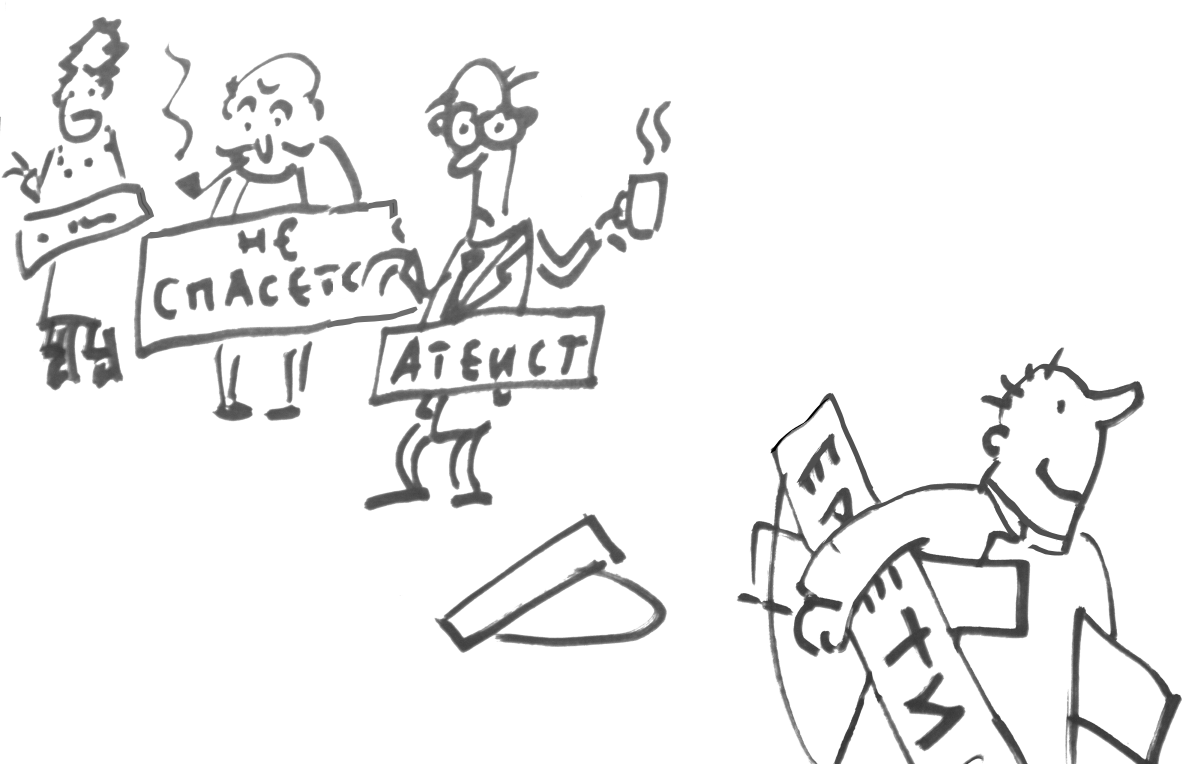 НЕ
СПАСЕТС
АТЕИСТ
ЕРЕТИ